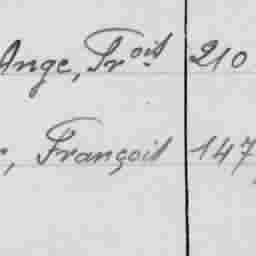 Ange, Frois 210
, François 147